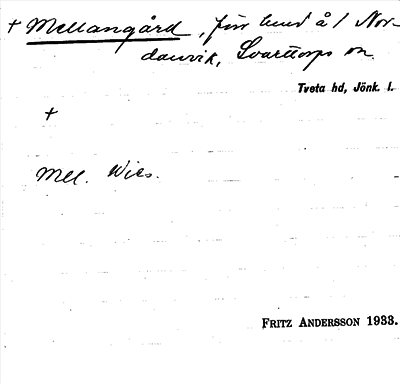 + Mellangård, förr hmd å 1 Nor-
danvik, Svarttorps sn.
Tveta hd, Jönk. l.
+
Mell. Wies.
FRITZ ANDERSSON 1933.